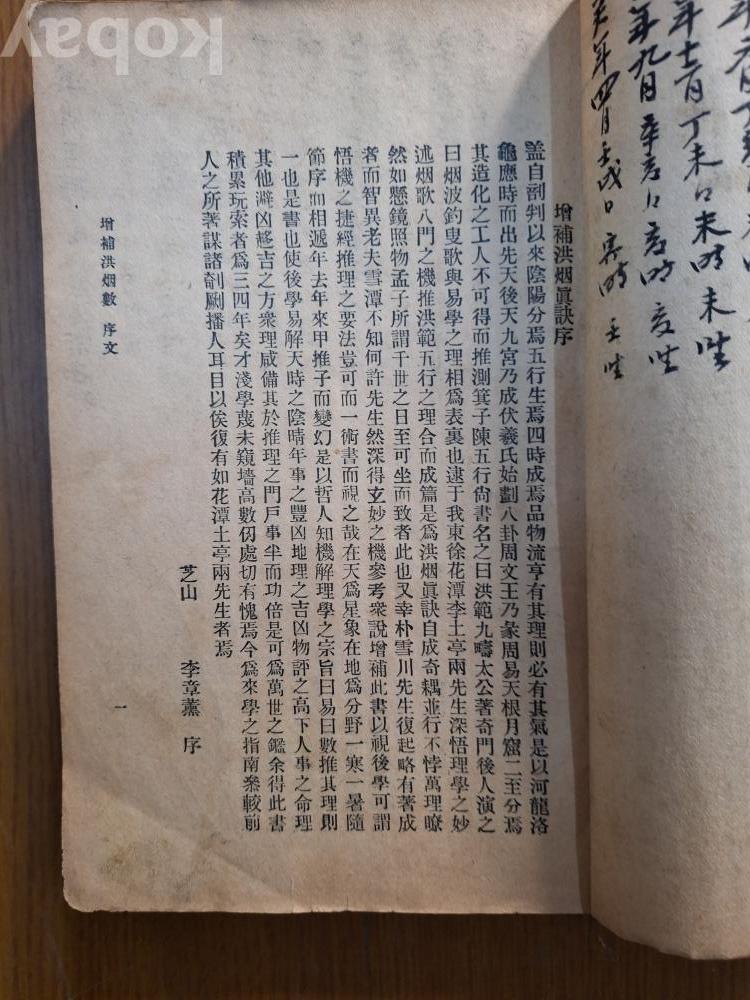 kobay
增補洪烟眞訣序
盖自剖判以來陰陽分焉五行生焉四時成焉品物流亨有其理則必有其氣是以河龍洛
龜應時而出先天後天九宮乃成伏羲氏始劃八卦周文王乃彖周易天根月窟二至分焉
其造化之工人不可得而推測箕子陳五行尙書名之曰洪範九疇太公著奇門後人演之
曰烟波釣叟歌與易學之理相爲表裏也逮于我東徐花潭李土亭兩先生深悟理學之妙
述烟歌八門之機推洪範五行之理合而成篇是爲洪烟眞訣自成奇耦並行不悖萬理暸
然如懸鏡照物孟子所謂千世之日至可坐而致者此也又幸朴雪川先生復起略有著成
者而智異老夫雪潭不知何許先生然深得玄妙之機參考衆說增補此書以視後學可謂
悟機之捷經推理之要法豈可而一術書而視之哉在天爲星象在地爲分野一寒一暑隨
節序而相遞年去年來甲推子而變幻是以哲人知機解理學之宗旨曰易曰數推其理則
一也是書也使後學易解天時之陰晴年事之豐凶地理之吉凶物評之高下人事之命理
其他避凶趍吉之方衆理咸備其於推理之門戶事半而功倍是可爲萬世之鑑余得此書
積累玩索者爲三四年矣才淺學蔑未窺墻高數仭處切有愧焉今爲來學之指南叅較前
人之所著謀諸剞劂播人耳目以俟復有如花潭土亭兩先生者焉
芝山 李章薰 序
增補洪烟數 序文
一
年九月辛亥日亥時亥生
年十二月丁未日未時未生
年四月壬戌日寅時壬生